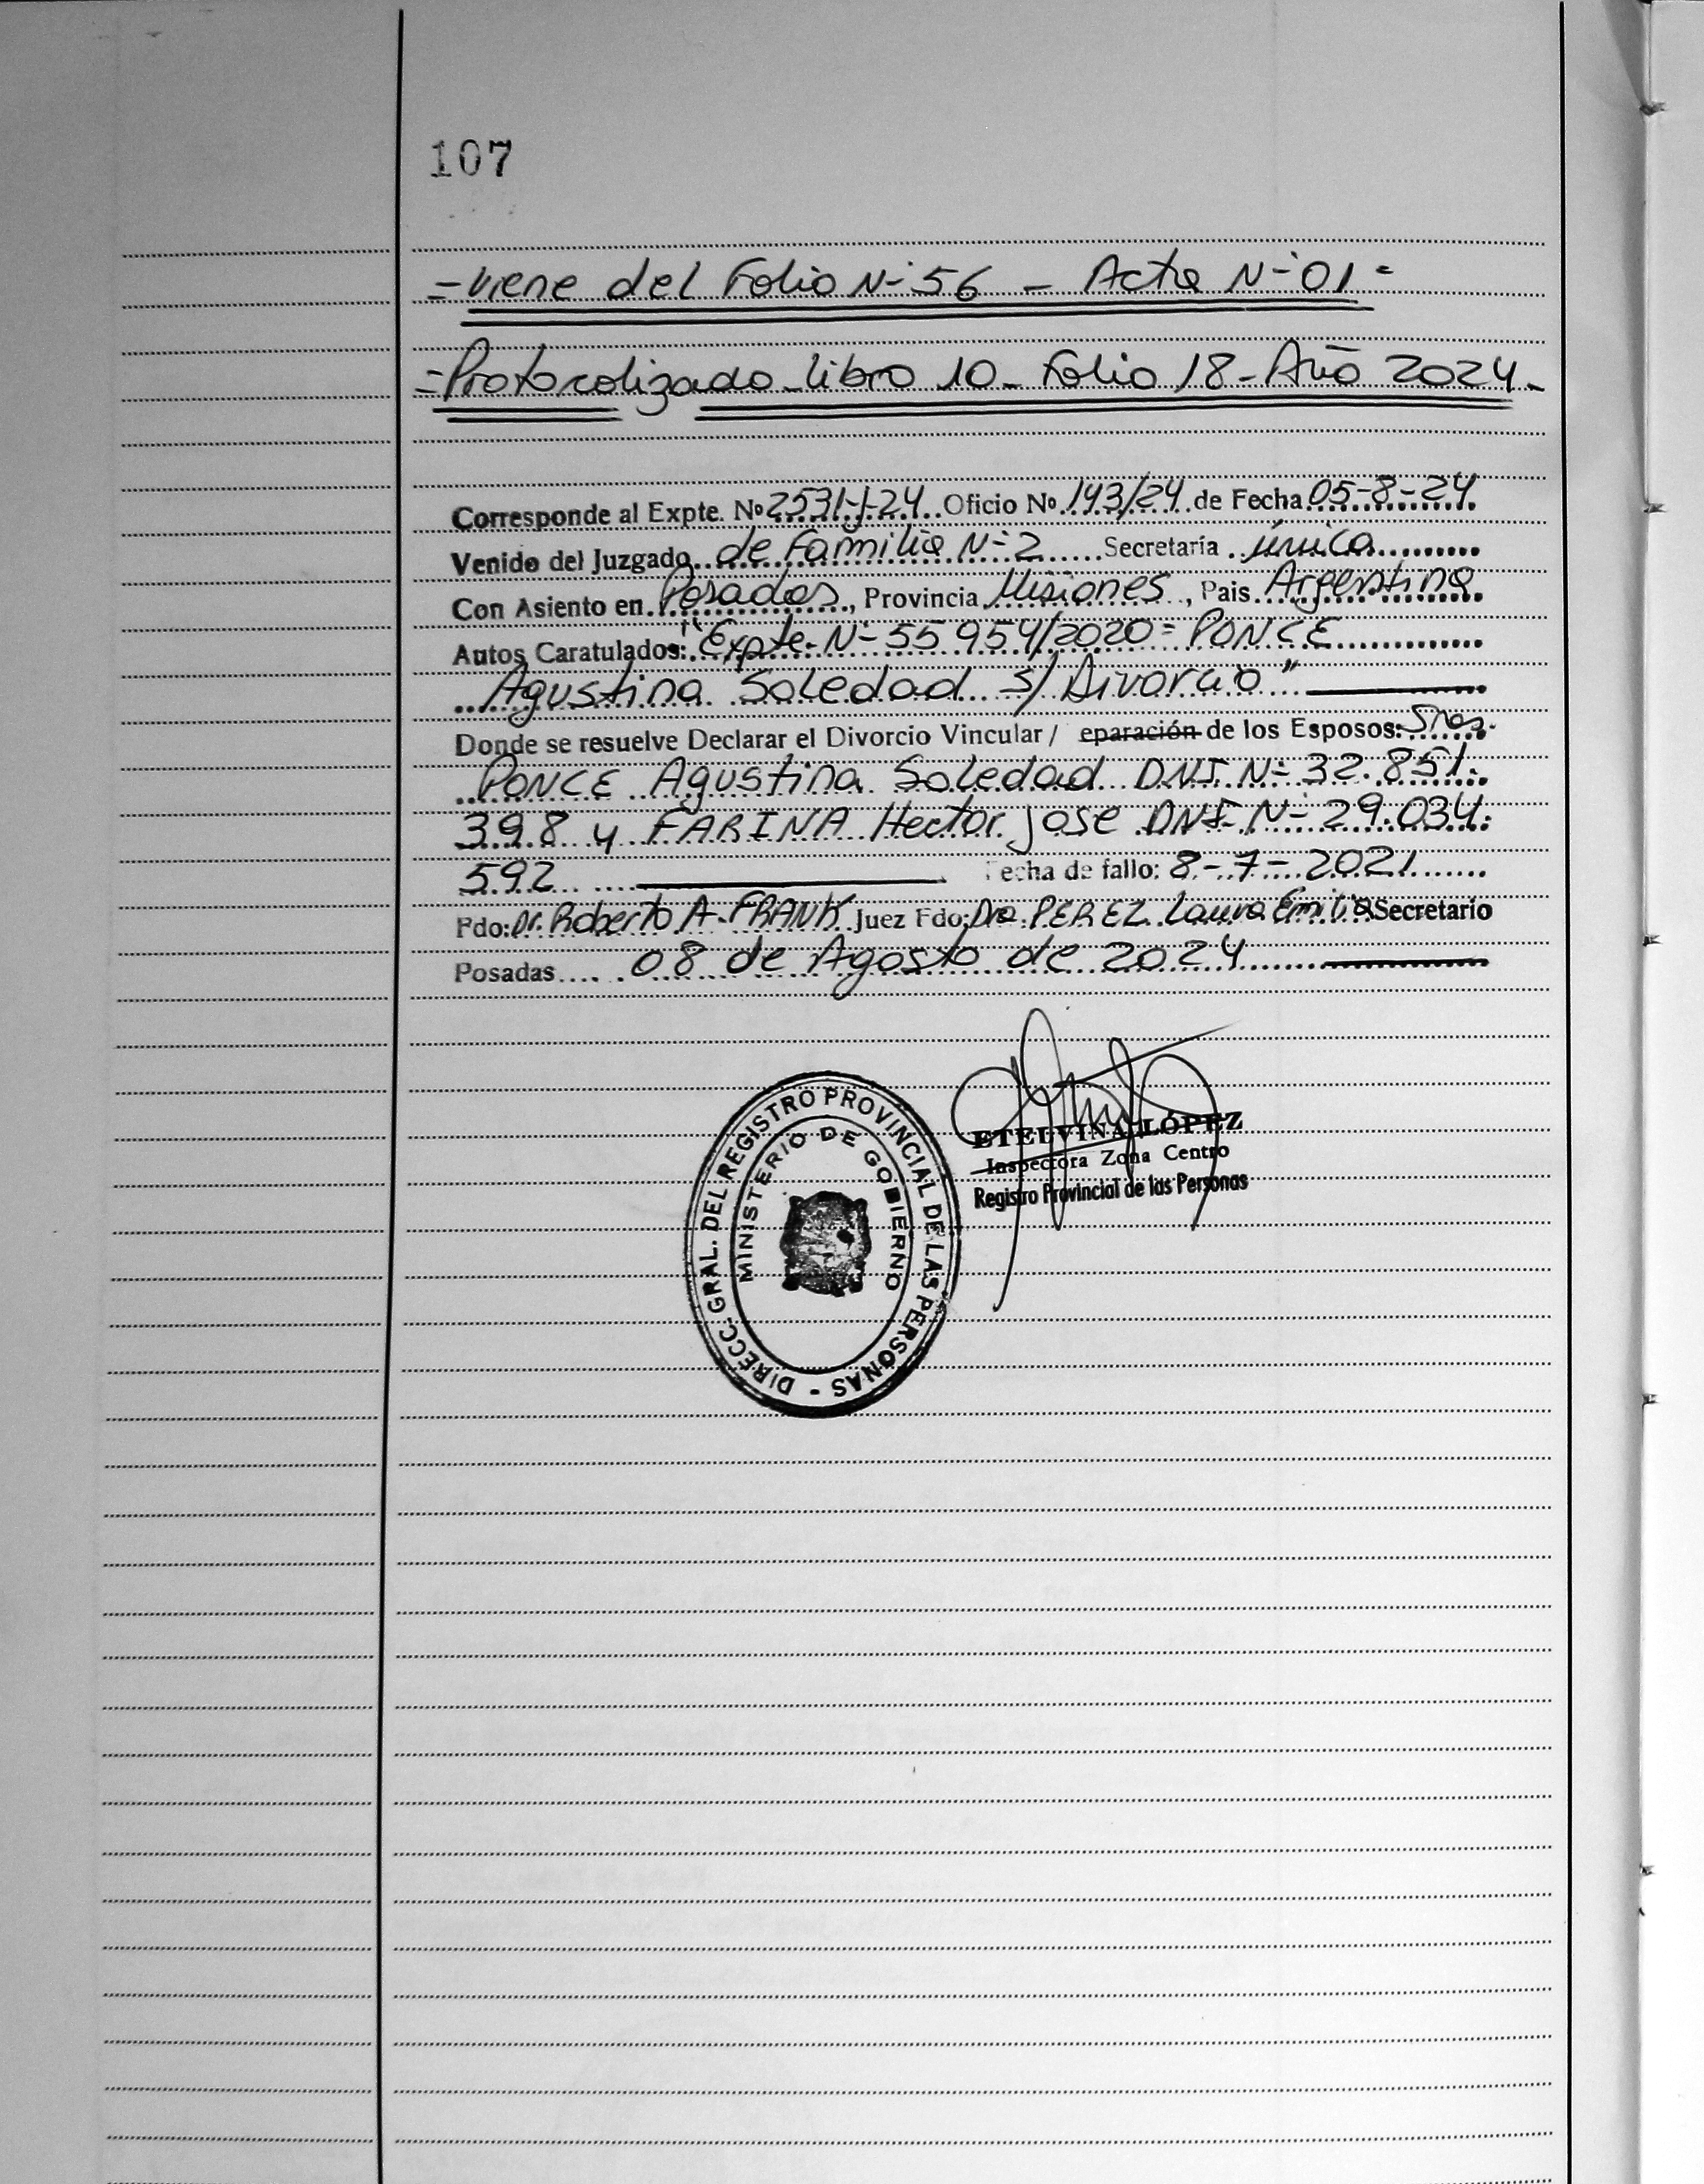 107
= viene del Folio N-° 56 - Acta N-° 01 =
= Protocolizado - libro 10 - Folio 18 - Año 2024 -
Corresponde al Expte. Nº 2531-J-24 Oficio Nº 143/24 de Fecha 05-8-24
Venido del Juzgado de Familia N-° 2 Secretaría única
Con Asiento en Posadas, Provincia Misiones, Pais Argentina
Autos Caratulados: "Expte. N-° 55954/2020 = PONCE
Agustina Soledad s/ Divorcio"
Donde se resuelve Declarar el Divorcio Vincular / eparación de los Esposos: Sres.
PONCE Agustina Soledad DNI N-° 32.851.
398 y FARINA Hector Jose DNI N-° 29.034.
592 Fecha de fallo: 8-7-2021
Fdo: Dr. Roberto A. FRANK Juez Fdo: Dra PEREZ Laura Emilia Secretario
Posadas 08 de Agosto de 2024
DIRECC. GRAL. DEL REGISTRO PROVINCIAL DE LAS PERSONAS -
MINISTERIO DE GOBIERNO
ETELVINA LÓPEZ
Inspectora Zona Centro
Registro Provincial de las Personas